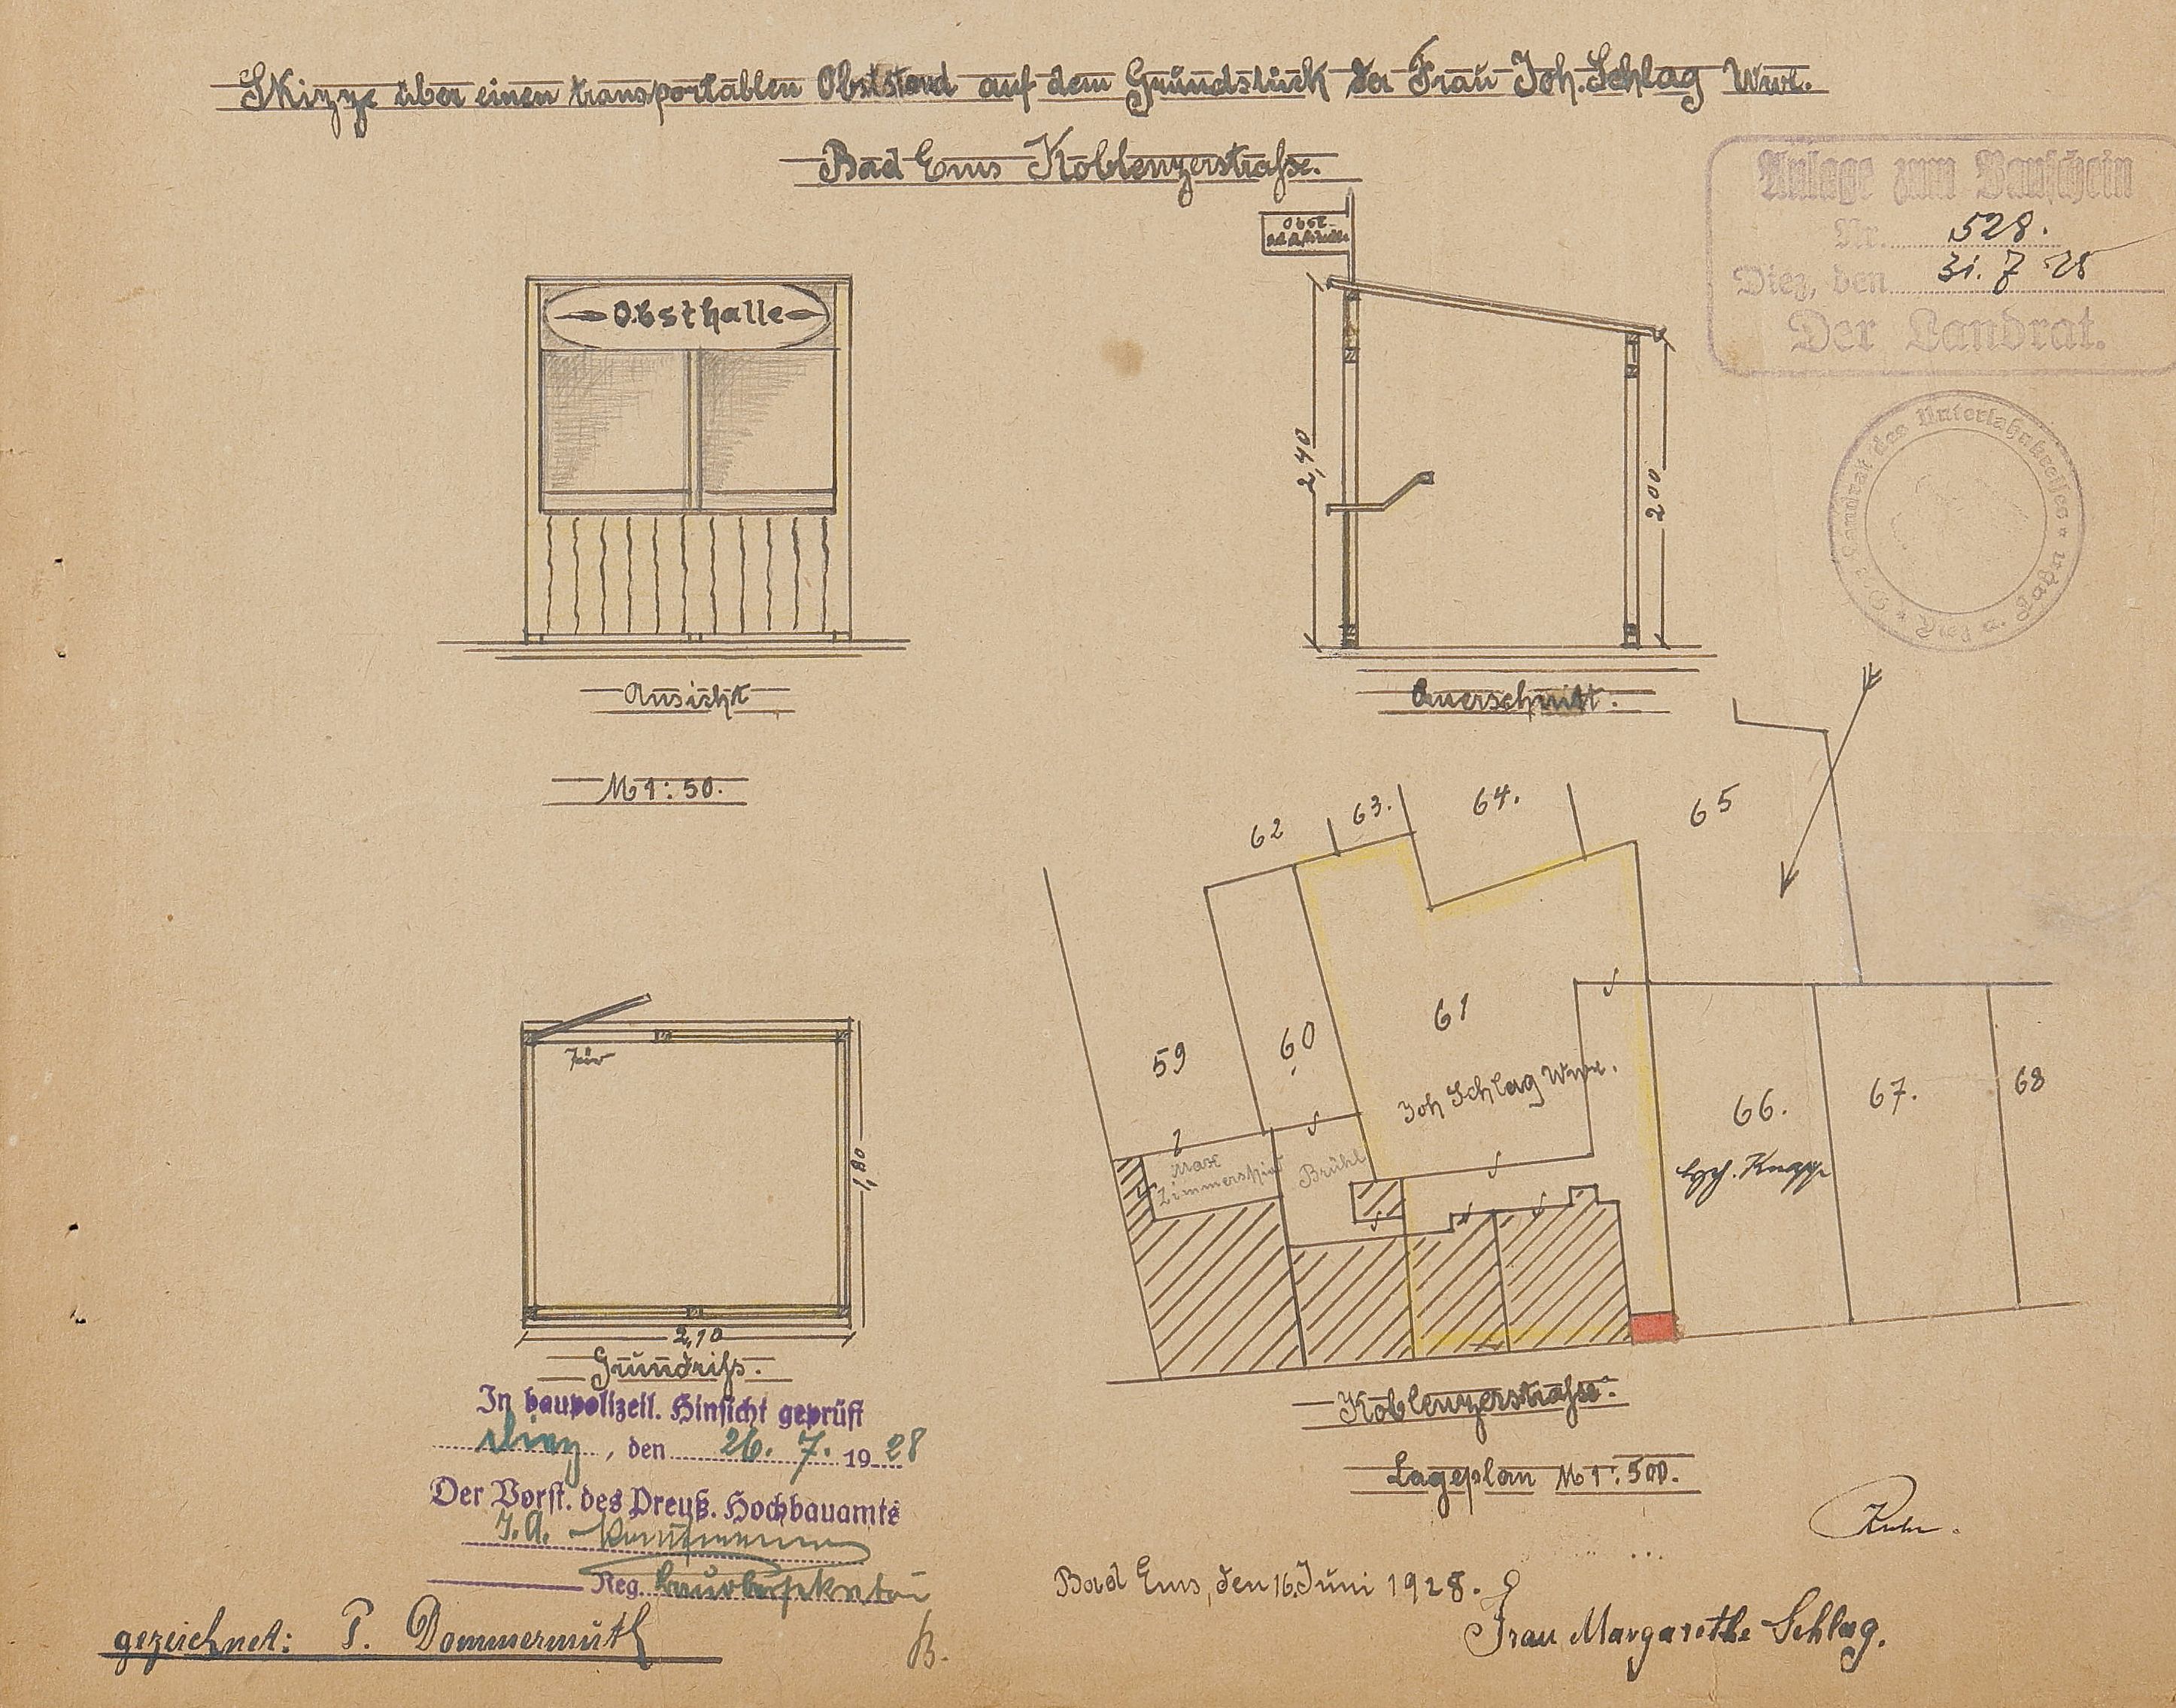 Skizze über einen transportablen Obststand auf dem Grundstück der Frau Joh. Schlag Wwe.
Bad Ems Koblenzerstraße.
Anlage zum Bauschein
Nr. 528.
Diez, den 31. 7 28
Der Landrat.
Der Landrat des Unterlahnkreises * Diez a. Lahn *
Obst-
Obsthalle
2,40
200
Ansicht
Querschnitt.
M 1:50.
62
63.
64.
65
59
60
61
Joh Schlag Wwe.
66.
67.
68
Hch. Knapp
Max
Brühl
Tür
1,80
2,10
Grundriß.
Koblenzerstraße.
Lageplan M 1:500.
In baupolizeil. Hinsicht geprüft
Diez, den 26. 7. 1928
Der Vorst. des Preuß. Hochbauamts
I. A.
Reg.
Bad Ems, den 16. Juni 1928.
Frau Margarethe Schlag.
gezeichnet: P. Dommermuth
B.